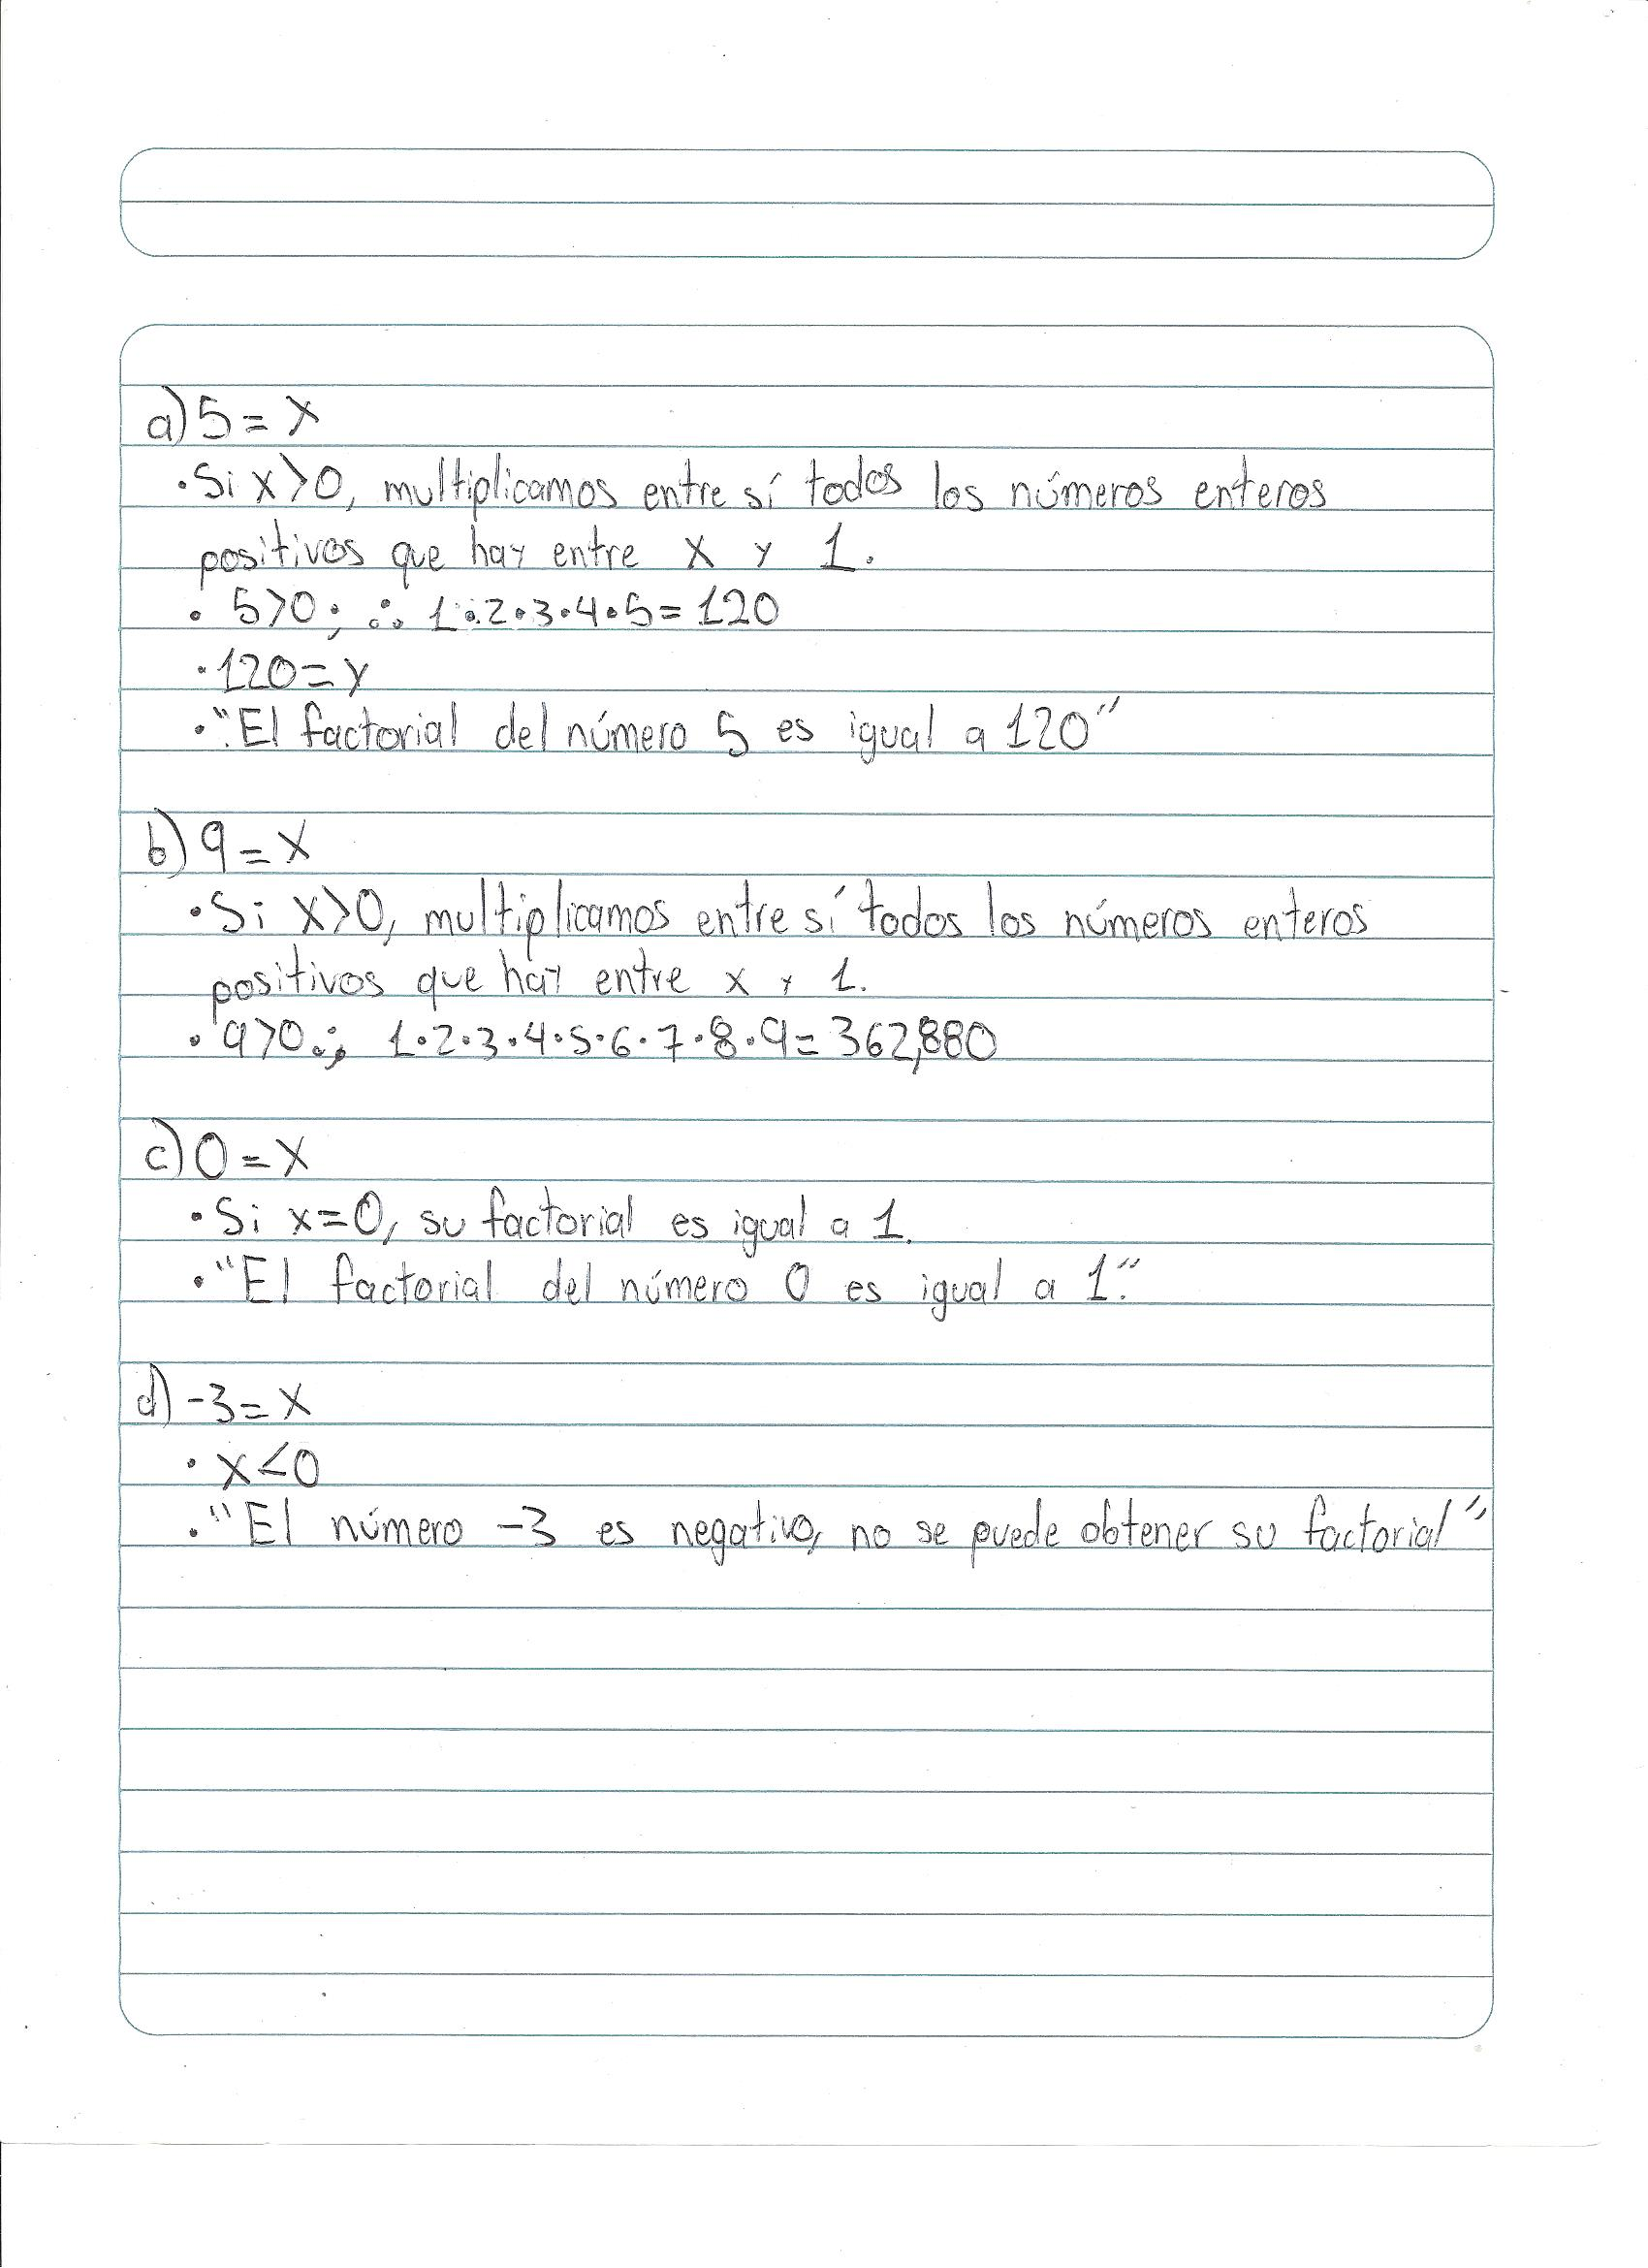 a) 5 = x
• Si x>0, multiplicamos entre sí todos los números enteros
positivos que hay entre x y 1.
• 5>0; ∴ 1•2•3•4•5=120
• 120=y
• "El factorial del número 5 es igual a 120"
b) 9 = x
• Si x>0, multiplicamos entre sí todos los números enteros
positivos que hay entre x y 1.
• 9>0∴; 1•2•3•4•5•6•7•8•9=362,880
c) 0 = x
• Si x=0, su factorial es igual a 1.
• "El factorial del número 0 es igual a 1."
d) -3 = x
• x<0
• "El número -3 es negativo, no se puede obtener su factorial"